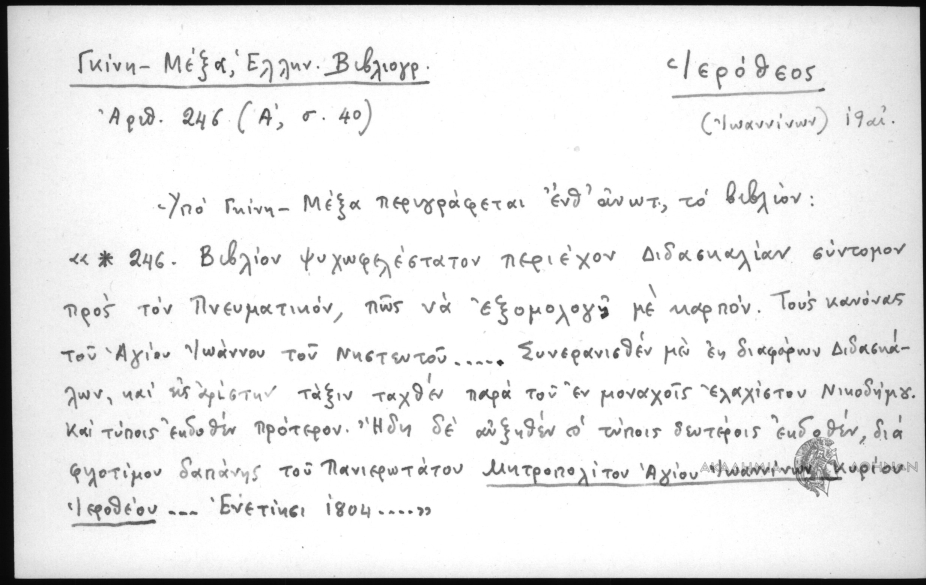 Γκίνη - Μέξα, Ελλην. Βιβλιογρ.
Ἀριθ. 246 (Α', σ. 40)
Ἱερόθεος
(Ἰωαννίνων) 19αἰ.
Ὑπό Γκίνη - Μέξα περιγράφεται ἔνθ' ἀνωτ., τό βιβλίον:
«* 246. Βιβλίον ψυχωφελέστατον περιέχον Διδασκαλίαν σύντομον
πρός τόν Πνευματικόν, πῶς νά ἐξομολογῇ μέ καρπόν. Τούς κανόνας
τοῦ Ἁγίου Ἰωάννου τοῦ Νηστευτοῦ..... Συνερανισθέν μέν ἐκ διαφόρων Διδασκά-
λων, καί εἰς ἀρίστην τάξιν ταχθέν παρά τοῦ ἐν μοναχοῖς ἐλαχίστου Νικοδήμου.
Καί τύποις ἐκδοθέν πρότερον. Ἤδη δέ αὐξηθέν τύποις δευτέροις ἐκδοθέν, διά
φιλοτίμου δαπάνης τοῦ Πανιερωτάτου Μητροπολίτου Ἁγίου Ἰωαννίνων Κυρίου
Ἱεροθέου ... Ἐνετίησι 1804.....»
ΑΚΑΔΗΜΙΑ ΑΘΗΝΩΝ